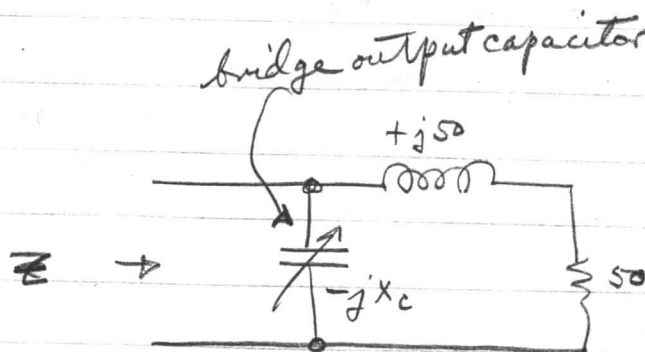 bridge output capacitor
+j50
Z →
-jXc
50